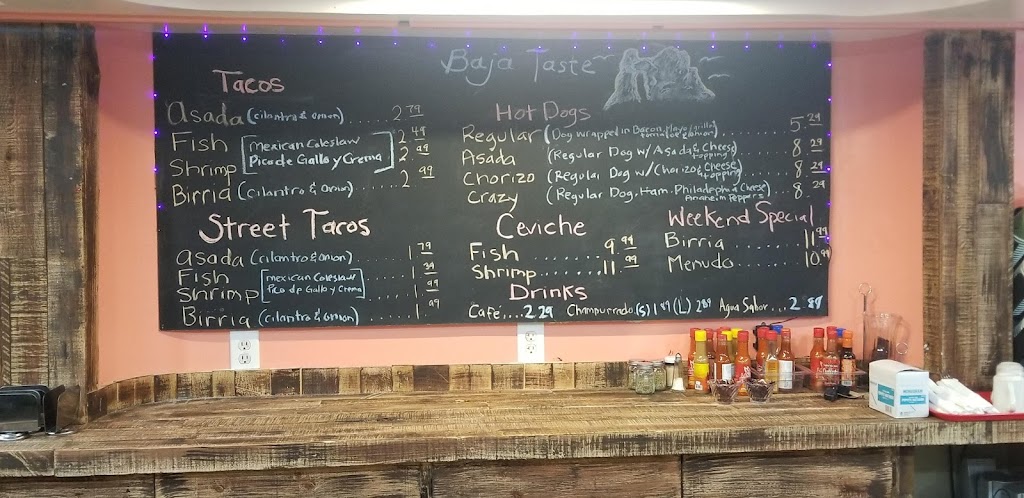 Baja Taste
Tacos
Asada (cilantro & onion) 2.79
Fish [Mexican Coleslaw 2.49
Shrimp Pico de Gallo y Crema] 2.99
Birria (Cilantro & Onion) 2.99
Street Tacos
Asada (cilantro & onion) 1.79
Fish [mexican Coleslaw 1.39
Shrimp Pico de Gallo y Crema] 1.99
Birria (cilantro & onion) 1.99
Hot Dogs
Regular (Dog wrapped in Bacon, Mayo, tomatoe & onion) 5.29
Asada (Regular Dog w/Asada & Cheese topping) 8.29
Chorizo (Regular Dog w/Chorizo & Cheese topping) 8.29
Crazy (Regular Dog, Ham, Philadephia Cheese, Anaheim Peppers) 8.29
Ceviche
Fish ........ 9.99
Shrimp ....... 11.99
Weekend Special
Birria ....... 11.99
Menudo ....... 10.99
Drinks
Café .... 2.29 Champurrado (S) 1.89 (L) 2.89 Agua Sabor ... 2.89